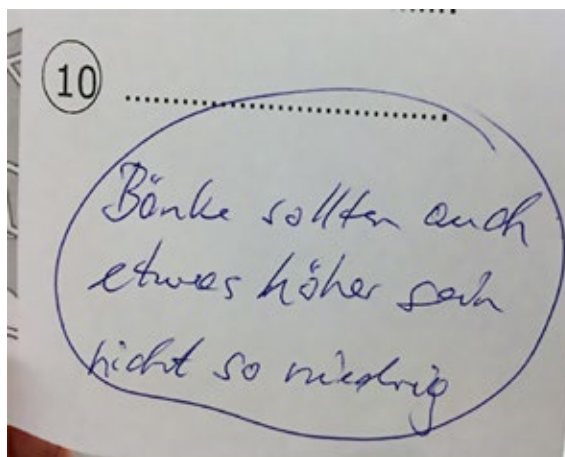 10
Bänke sollten auch
etwas höher sein
nicht so niedrig